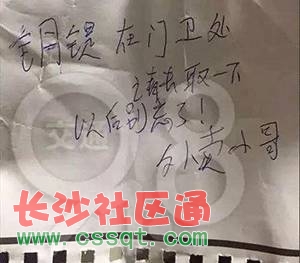 钥匙 在门卫处
请去取一下
以后别忘了!
外卖小哥
交通
长沙社区通
www.cssqt.com